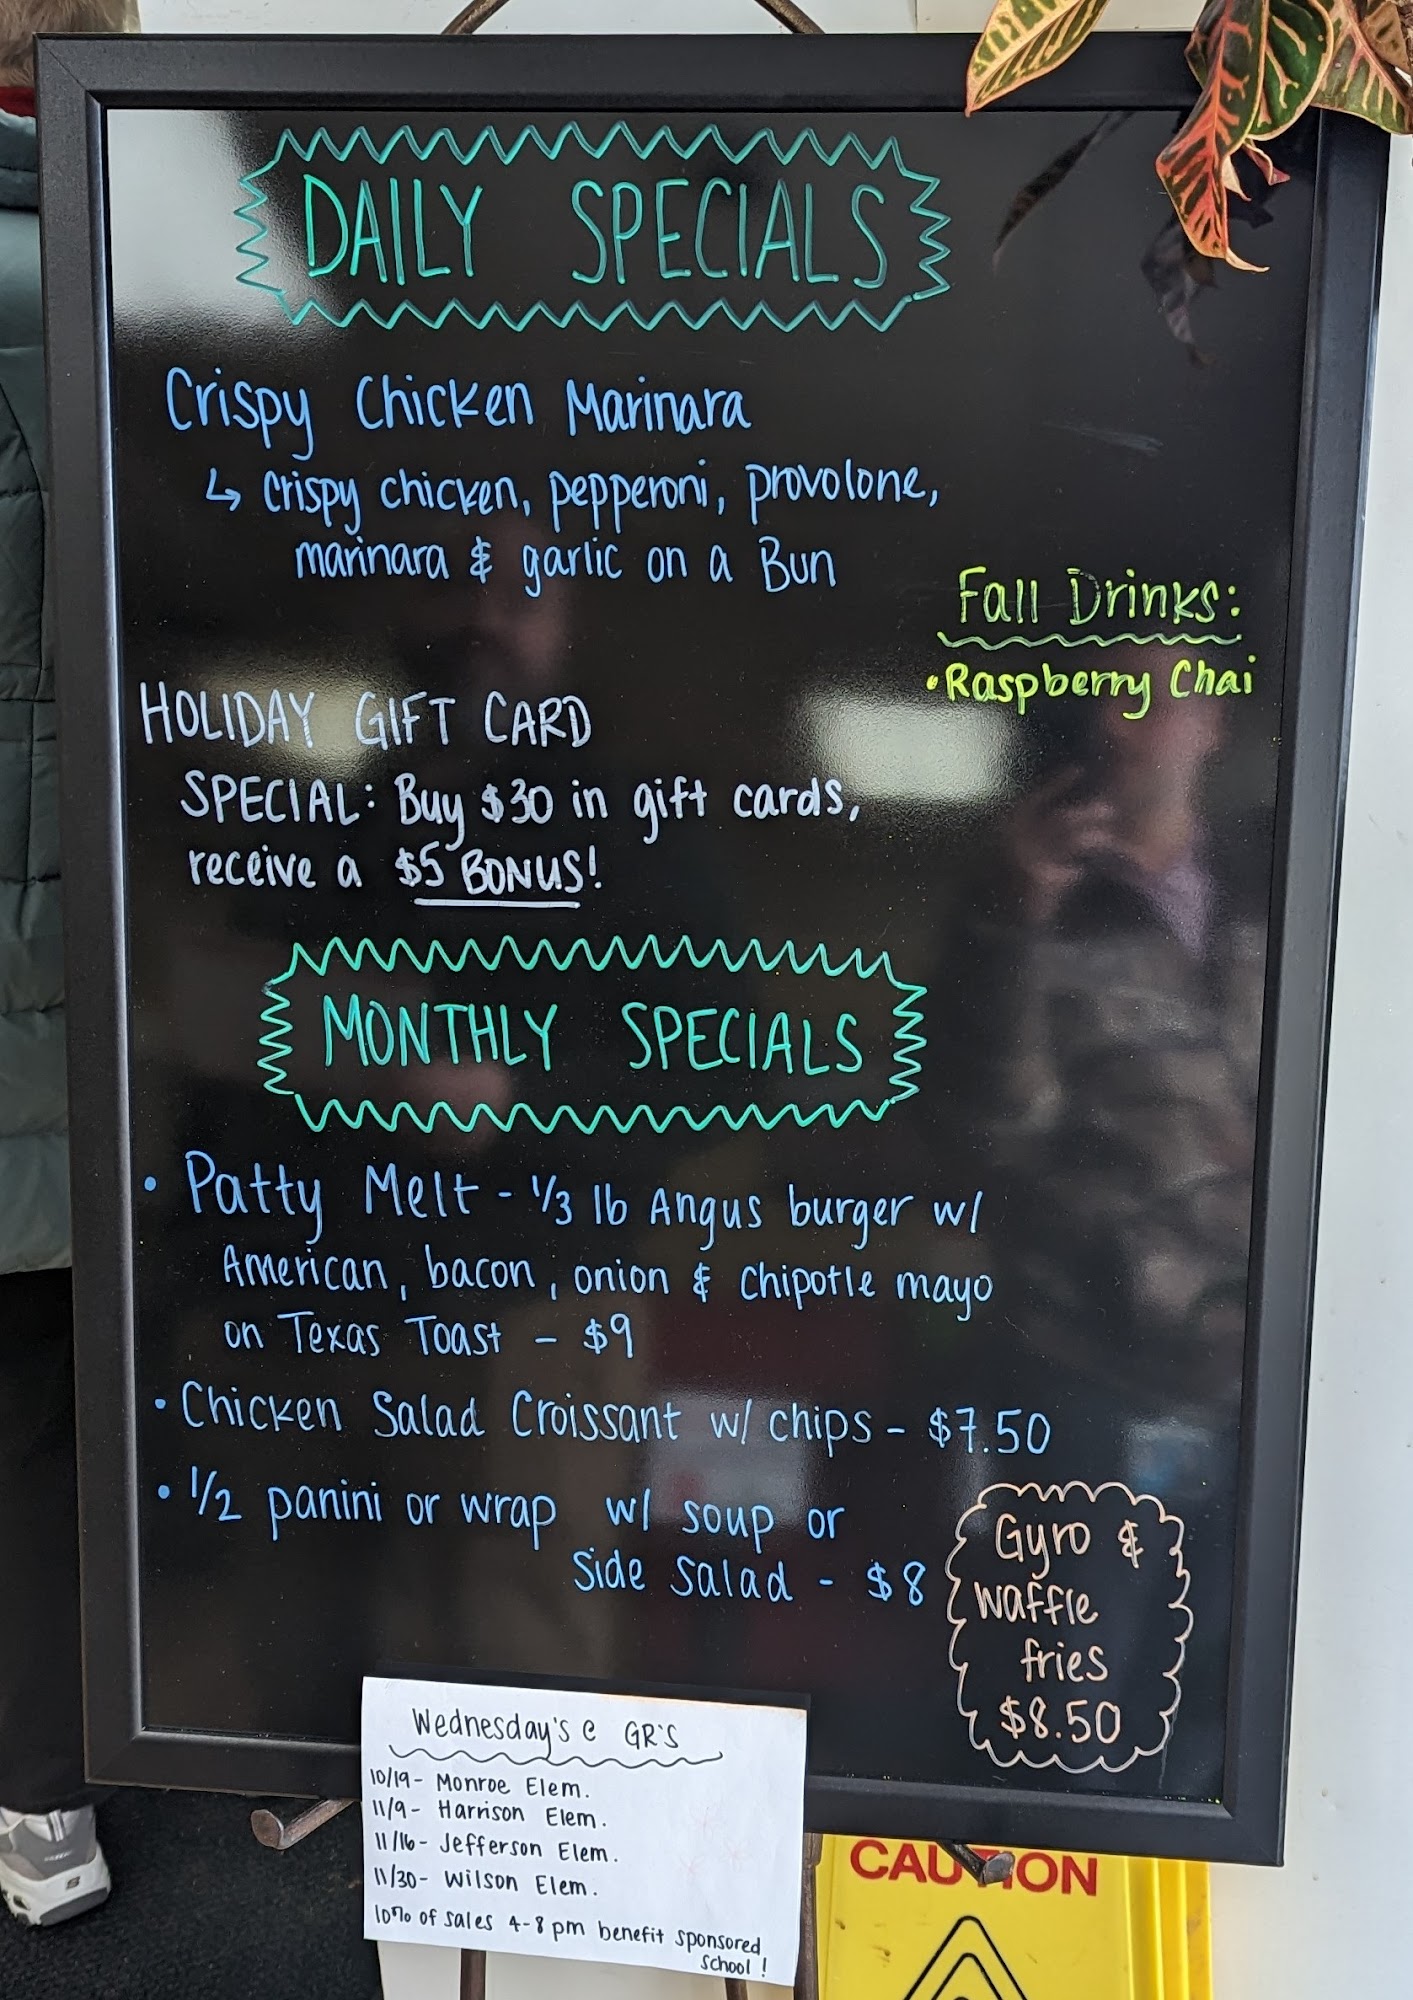 DAILY SPECIALS
Crispy Chicken Marinara
↳ crispy chicken, pepperoni, provolone,
marinara & garlic on a Bun
Fall Drinks:
• Raspberry Chai
HOLIDAY GIFT CARD
SPECIAL: Buy $30 in gift cards,
receive a $5 BONUS!
MONTHLY SPECIALS
• Patty Melt - 1/3 lb Angus burger w/
American, bacon, onion & chipotle mayo
on Texas Toast - $9
• Chicken Salad Croissant w/ chips - $7.50
• 1/2 panini or wrap w/ soup or
side salad - $8
Gyro &
waffle
fries
$8.50
Wednesday's @ GR's
10/19 - Monroe Elem.
11/9 - Harrison Elem.
11/16 - Jefferson Elem.
11/30 - Wilson Elem.
10% of sales 4-8 pm benefit sponsored
school!
CAUTION